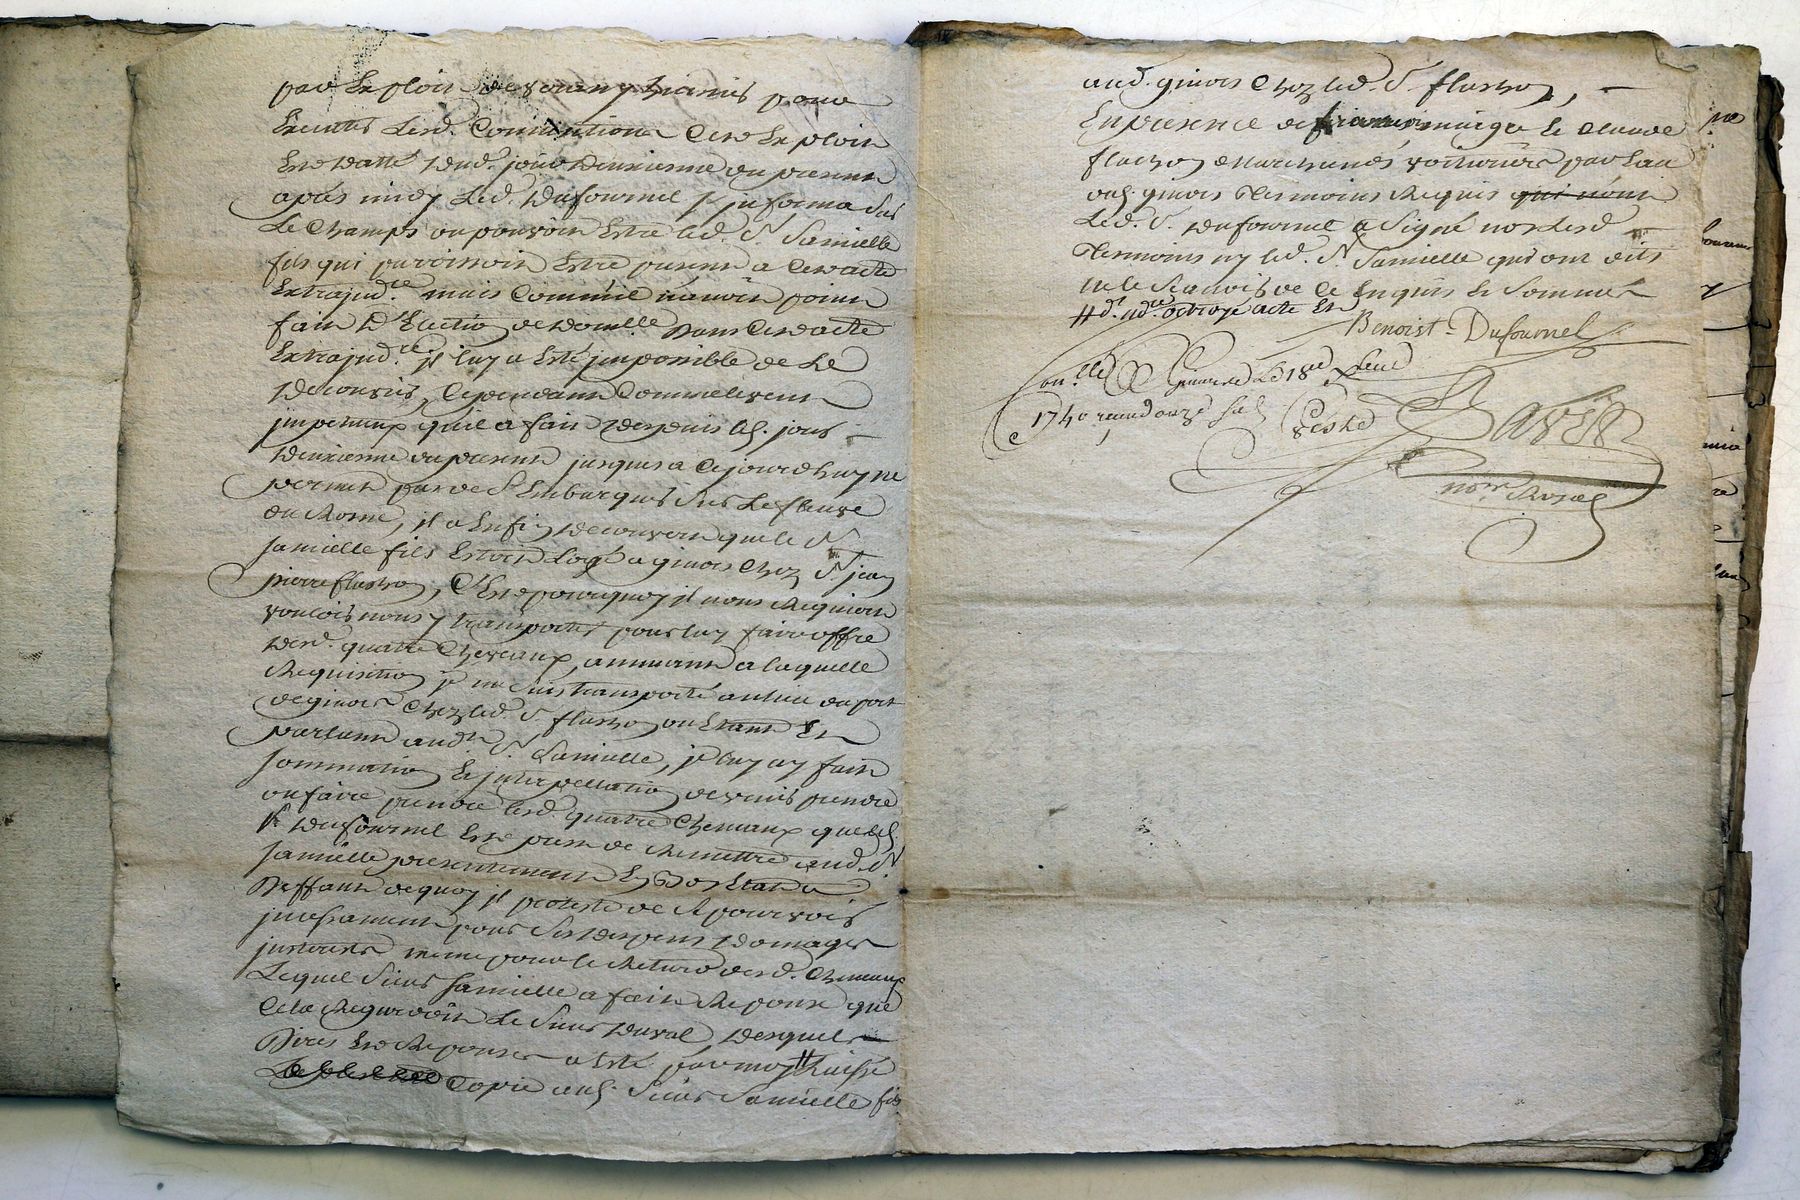 par Exploit de Soramy hiamis pour
Executer Lesd. Conventions Ce Exploit
Est datté dud. jour deuxieme du present
apres midy Led. Dufournel s'informa sur
Le Champs ou pouvoit Estre led. Sr. Samielle
fils qui paroissoit Estre present a Ced acte
Extrajud.re mais Comme il n'avoit point
fait d'Election de domille dans Ced acte
Extrajud.re il luy a Esté impossible de Le
decouvrir, Cependant Comme le vent
impetueux qu'il a fait depuis led. jour
deuxieme du present jusques a Ce jourdhuy ne
permit pas de S'Embarquer Sur Le fleuve
du Rosne, il a Enfin decouvert que le Sr.
Samielle fils Estoit Logé a givors Chez Sr. jean
pierre flachon, C'Est pourquoy il nous Requiert
vouloir nous y transporter pour luy faire offre
desd. quatre Chevaux, a laquelle
Requisition je me suis transporté au lieu du port
de givors Chez led. S. flachon ou Etant Et
parlant aud. Sr. Samielle, je luy ay fait
Sommation Et jnterpellation de venir prendre
ou faire prendre lesd. quatre Chevaux que led.
Sr. Dufournel Est prest de Remettre aud. Sr.
Samielle presentement Et Bon Etat a
Deffaut de quoy il proteste de Se pourvoir
jncessament pour Ses depens domages
jnterests meme pour le Retard desd. Chevaux
Lequel Sieur Samielle a fait Reponse que
Cela Regardoit Le Sieur Duval, desquels
Dires Et Reponses a Esté par moy # Laissé
Copie aud. Sieur Samielle fils
aud. givors Chez led. S. flachon,
En presence de mingu Et Claude
flachon Marchands voituriers par Eau
aud. givors Temoins Requis qui n'ont
Led. S. Dufournel a Signé non lesd.
Temoins ny led. Sr. Samielle qui ont dit
ne le Scavoir de Ce Enquis Et Sommés
# d. nd.re octroyé acte Et
Benoist Dufournel
Con.llé a givors Le 18e
1740 receu douze sols
Peshe
Baver
no.re Royal